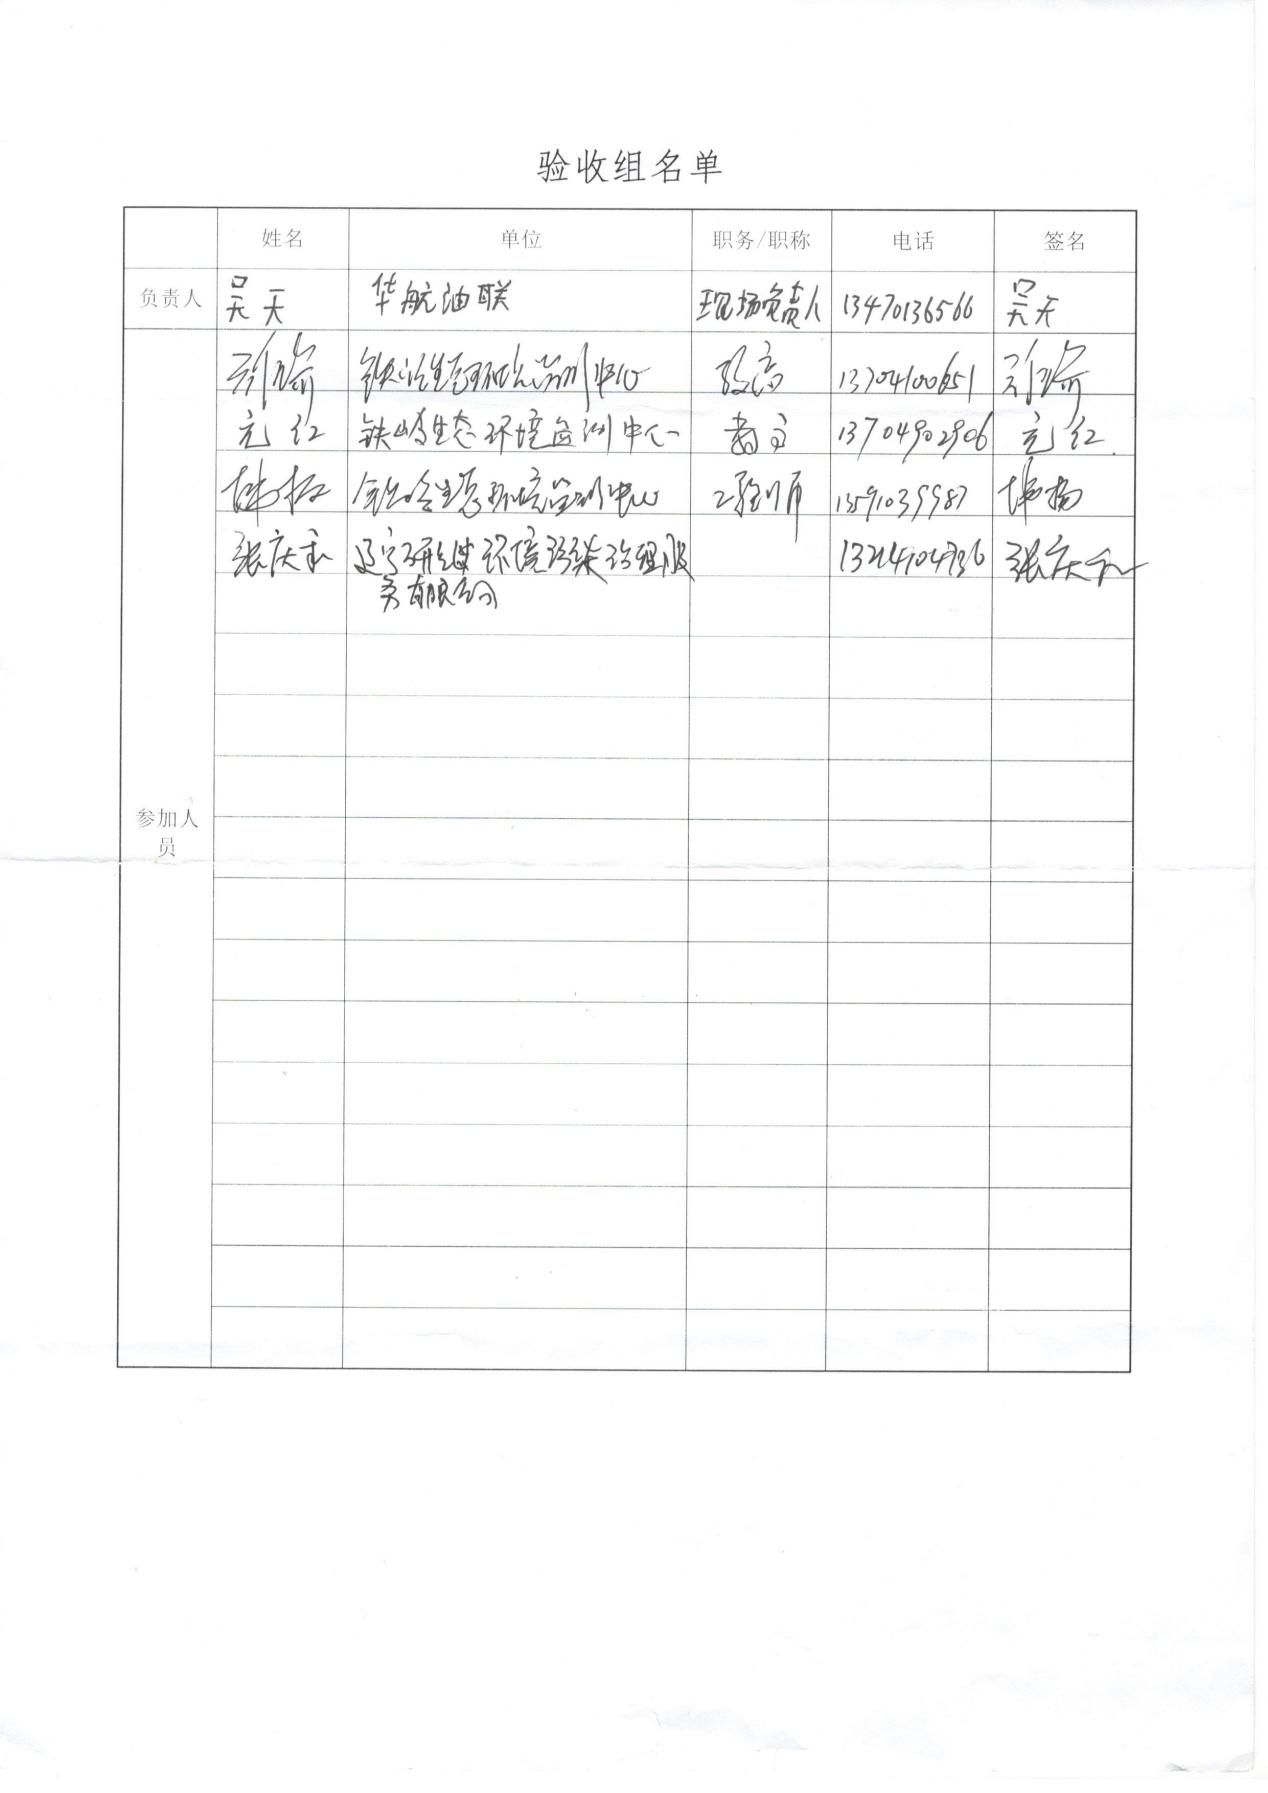 验收组名单
姓名 单位 职务/职称 电话 签名
负责人 吴天 华航油联 现场负责人 13470136566 吴天
铁岭生态环境监测中心 教高 13704100651
元红 铁岭生态环境监测中心 13704902906 元红
铁岭生态环境监测中心 工程师 13591039987
张庆和 辽宁 环境污染治理服 13214104736 张庆和
务有限公司
参加人
员